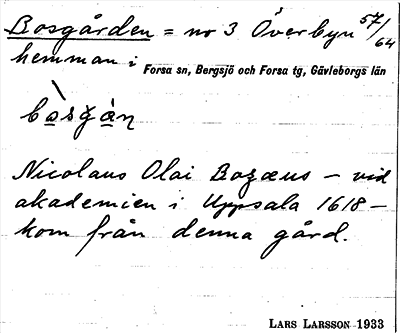 Bosgården = no 3 Överbyn 57/64
hemman i Forsa sn, Bergsjö och Forsa tg, Gävleborgs län
Nicolaus Olai Bozæus – vid
akademien i Uppsala 1618 –
kom från denna gård.
LARS LARSSON 1933